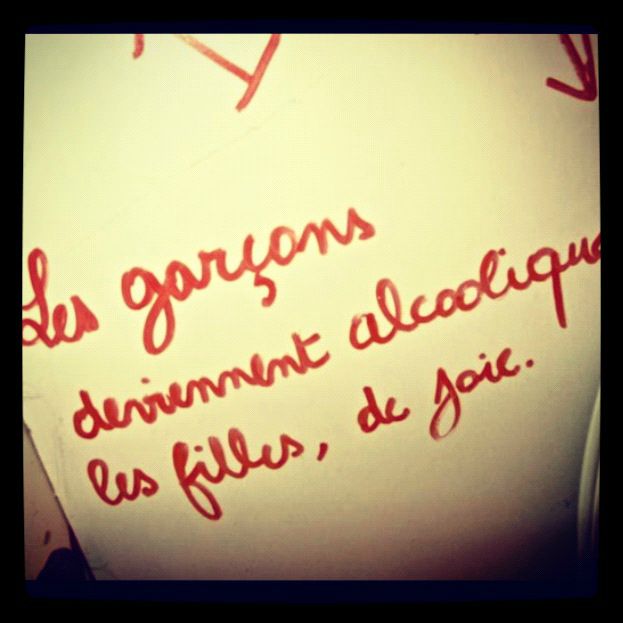 Les garçons
deviennent alcoolique
les filles, de joie.